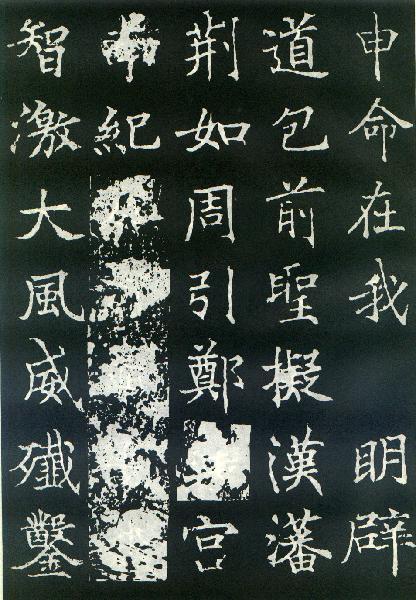 申命在我 明辟
道包前聖擬漢藩
荆如周引鄭宮
南紀
智激大風威殲鑿